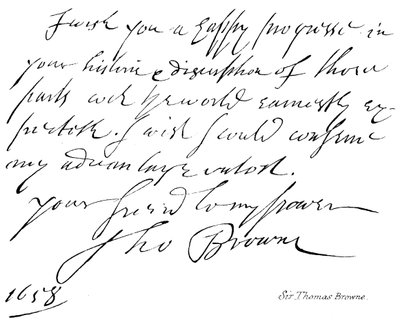 I wish you a happy progresse in
your historie & discription of those
parts wch ye world earnestly ex-
pecteth. I wish I could
my unto it.
your friend to my power
Tho Browne
1658
Sir Thomas Browne.